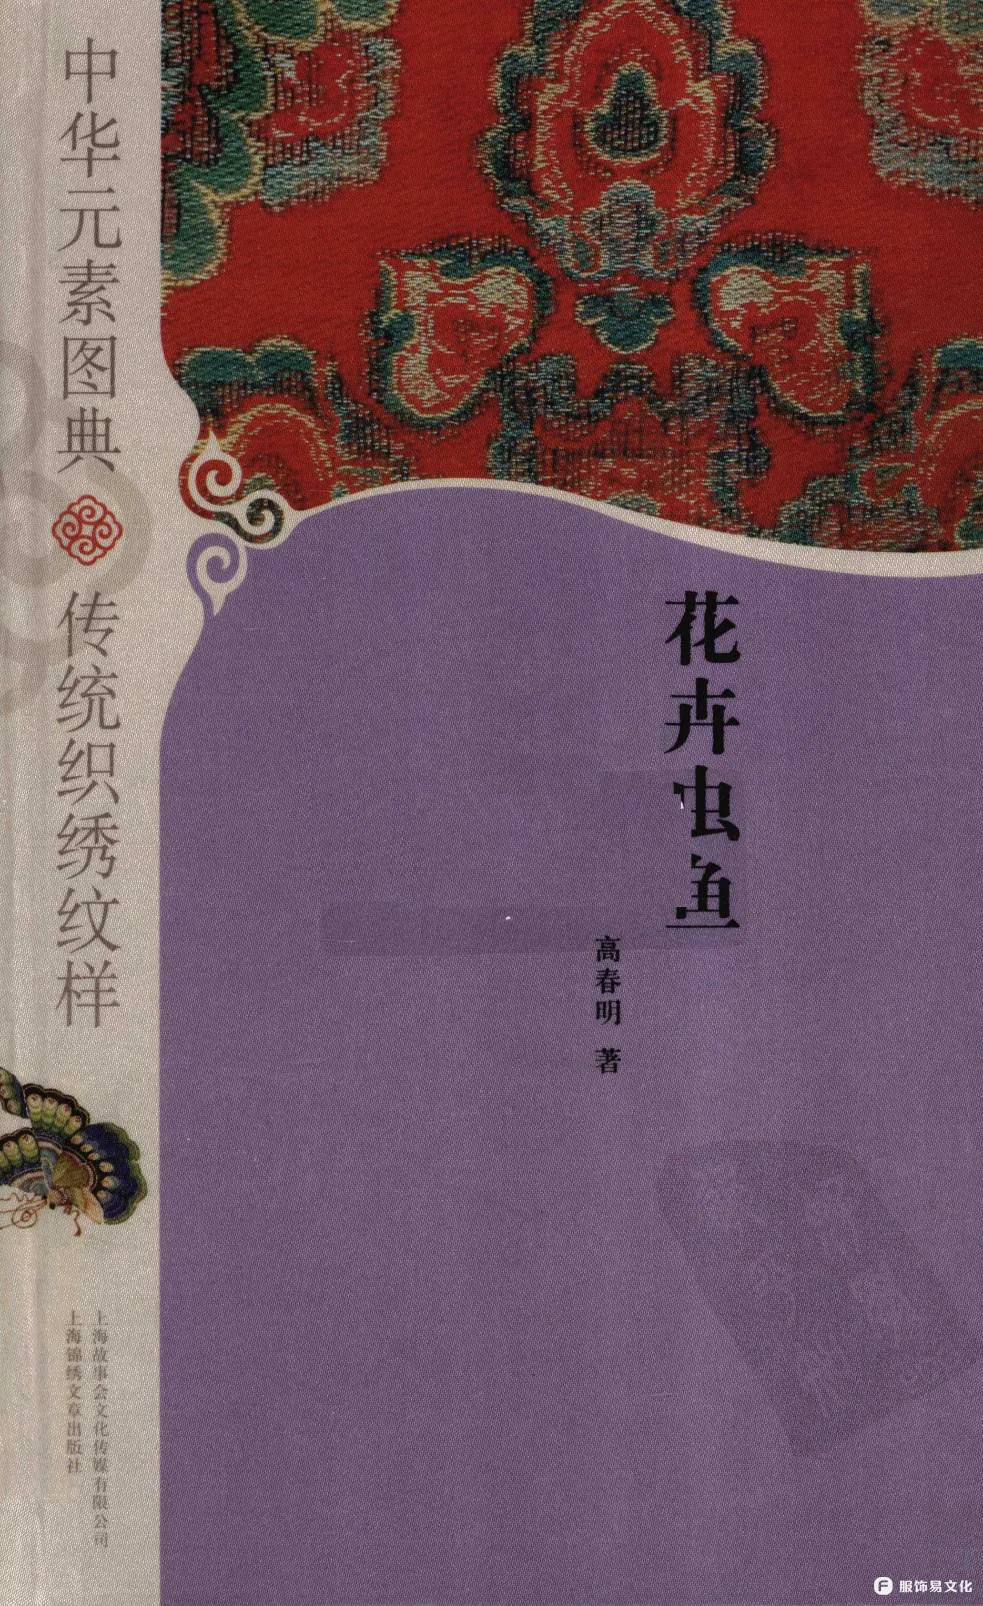 中华元素图典
传统织绣纹样
花卉虫鱼
高春明 著
上海故事会文化传媒有限公司
上海锦绣文章出版社
服饰易文化